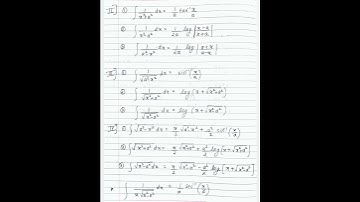 II] ① ∫ 1/(x²+a²) dx = 1/a tan⁻¹ x/a
② ∫ 1/(x²-a²) dx = 1/2a log |x-a/x+a|
③ ∫ 1/(a²-x²) dx = 1/2a log |a+x/a-x|
III] ① ∫ 1/√(a²-x²) dx = sin⁻¹ (x/a)
② ∫ 1/√(x²+a²) dx = log [x+√(x²+a²)]
③ ∫ 1/√(x²-a²) dx = log [x+√(x²-a²)]
IV] ① ∫ √(a²-x²) dx = x/2 √(a²-x²) + a²/2 sin⁻¹ (x/a)
② ∫ √(x²+a²) dx = x/2 √(x²+a²) + a²/2 log [x+√(x²+a²)]
③ ∫ √(x²-a²) dx = x/2 √(x²-a²) - a²/2 log [x+√(x²-a²)]
∫ 1/(x√(x²-a²)) dx = 1/a (x/a)